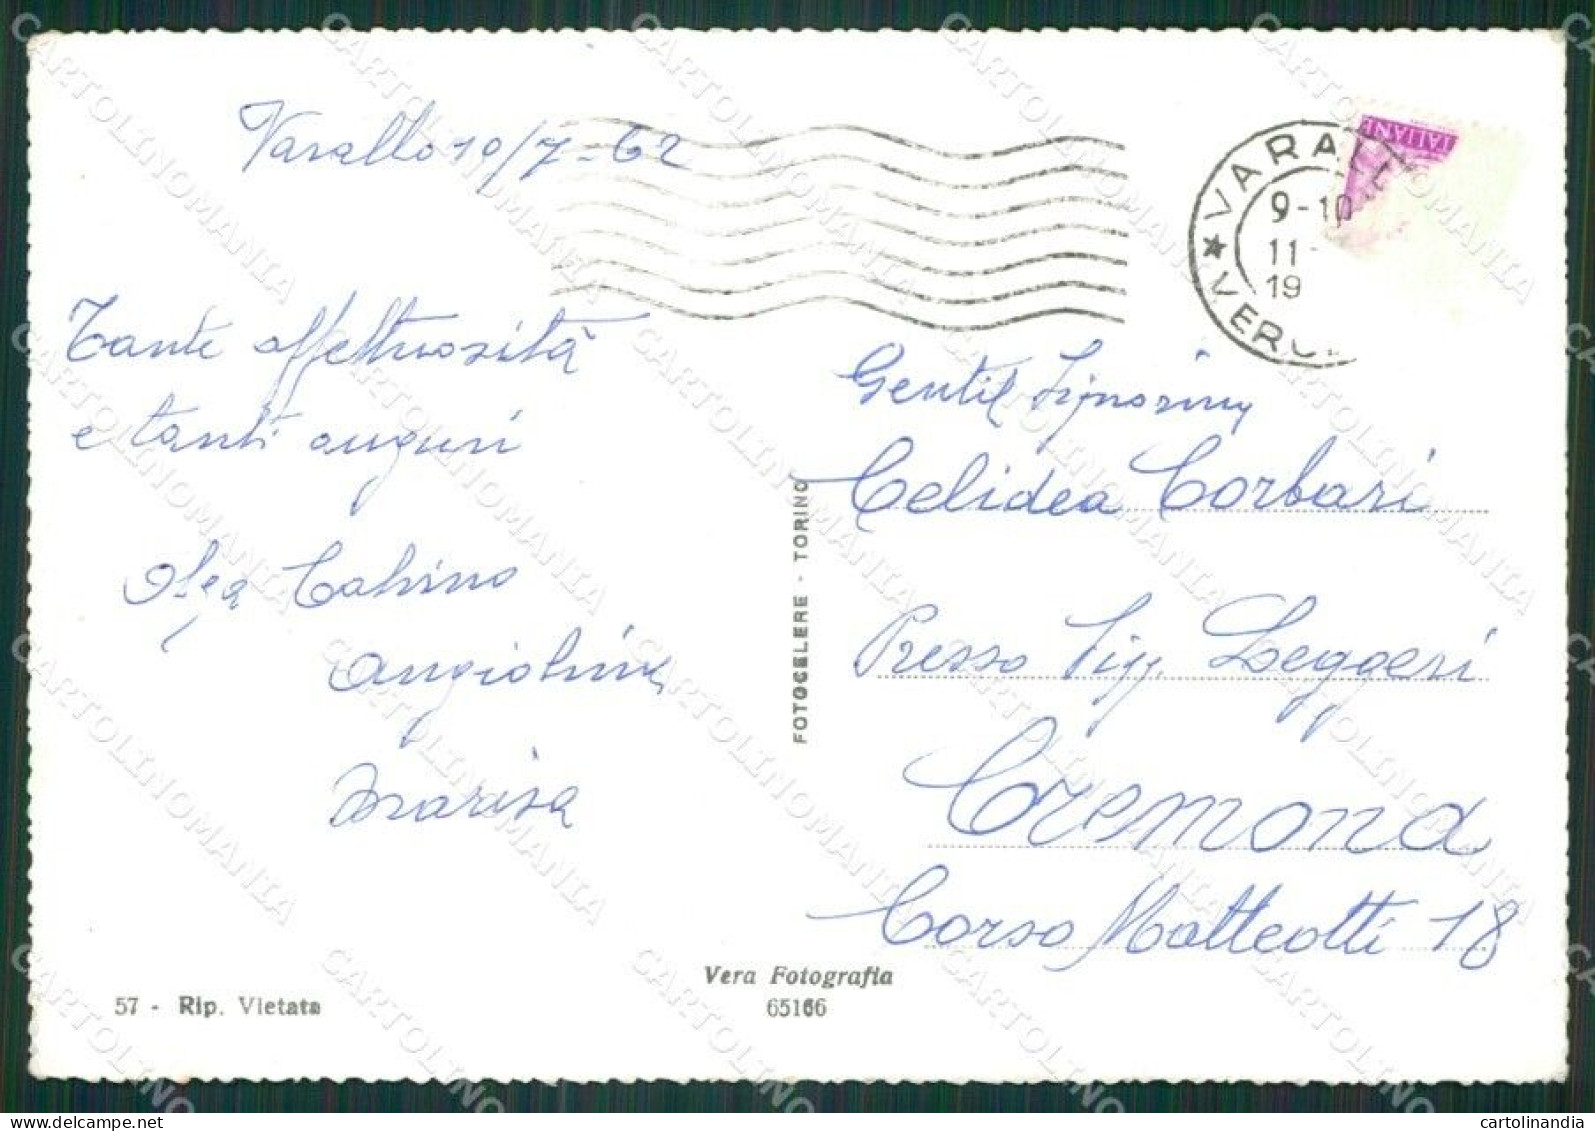 Varallo 10/7-62
Tante affettuosità
e tanti auguri
Olga
Angiolina
Marisa
VARALL
9-10
11-
19
★ VERC
ITALIANE
Gentil Signorina
Celidea Corbari
Presso Sigg. Leggeri
Cremona
Corso Matteotti 18
FOTOCELERE - TORINO
Vera Fotografia
65166
57 - Rip. Vietata
CARTOLINOMANIA
cartolinandia